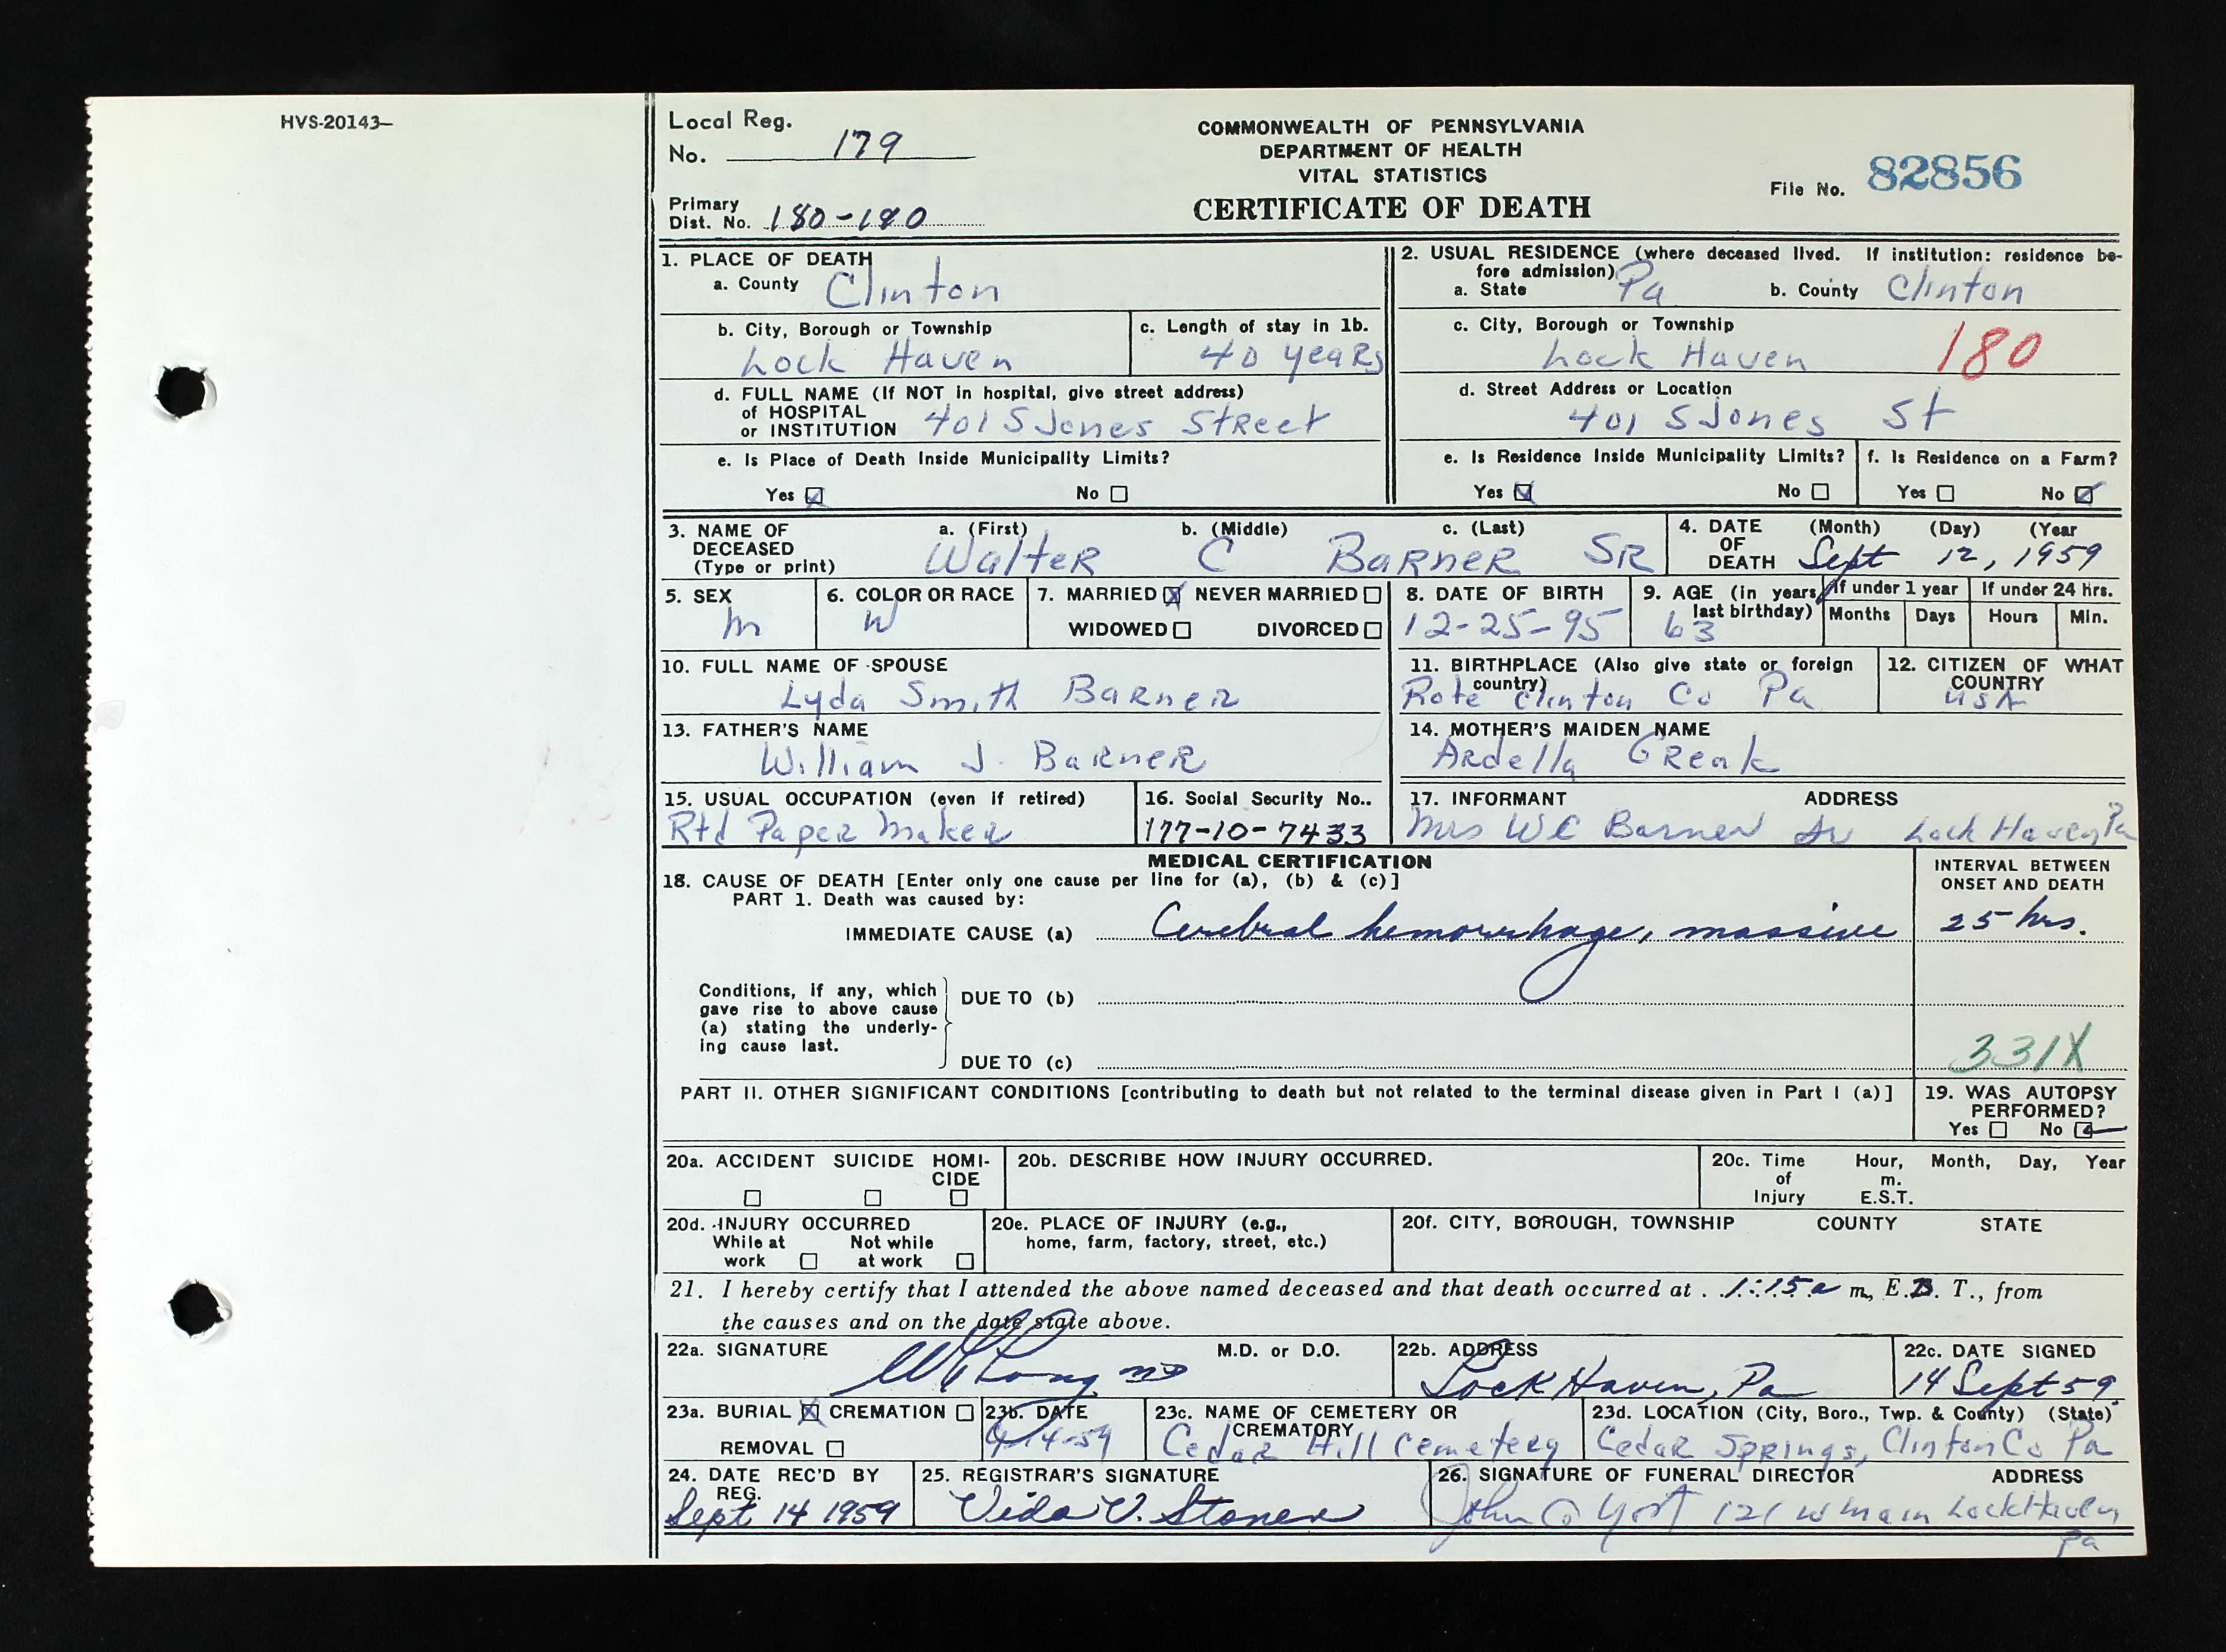 HVS-20143-
Local Reg.
No. 179
COMMONWEALTH OF PENNSYLVANIA
DEPARTMENT OF HEALTH
VITAL STATISTICS
CERTIFICATE OF DEATH
File No. 82856
Primary
Dist. No. 180-180
1. PLACE OF DEATH
a. County Clinton
2. USUAL RESIDENCE (where deceased lived. If institution: residence be-
fore admission)
a. State Pa b. County Clinton
b. City, Borough or Township
Lock Haven
c. Length of stay in 1b.
40 years
c. City, Borough or Township
Lock Haven
180
d. FULL NAME (If NOT in hospital, give street address)
of HOSPITAL
or INSTITUTION 401 S Jones Street
d. Street Address or Location
401 S Jones St
e. Is Place of Death Inside Municipality Limits?
Yes No
e. Is Residence Inside Municipality Limits?
Yes No
f. Is Residence on a Farm?
Yes No
3. NAME OF
DECEASED
(Type or print)
a. (First) b. (Middle) c. (Last)
Walter C Barner SR
4. DATE
OF
DEATH
(Month) (Day) (Year
Sept 12, 1959
5. SEX
M
6. COLOR OR RACE
W
7. MARRIED NEVER MARRIED
WIDOWED DIVORCED
8. DATE OF BIRTH
12-25-95
9. AGE (in years
last birthday)
63
If under 1 year
Months Days
If under 24 hrs.
Hours Min.
10. FULL NAME OF SPOUSE
Lyda Smith Barner
11. BIRTHPLACE (Also give state or foreign
country)
Rote Clinton Co Pa
12. CITIZEN OF WHAT
COUNTRY
USA
13. FATHER'S NAME
William J. Barner
14. MOTHER'S MAIDEN NAME
Ardella Greak
15. USUAL OCCUPATION (even if retired)
Rtd Paper Maker
16. Social Security No..
177-10-7433
17. INFORMANT ADDRESS
Mrs WC Barner Sr Lock Haven, Pa
MEDICAL CERTIFICATION
18. CAUSE OF DEATH [Enter only one cause per line for (a), (b) & (c)]
PART 1. Death was caused by:
IMMEDIATE CAUSE (a) Cerebral hemorrhage, massive
INTERVAL BETWEEN
ONSET AND DEATH
25 hrs.
Conditions, if any, which
gave rise to above cause
(a) stating the underly-
ing cause last.
DUE TO (b)
DUE TO (c)
331X
PART II. OTHER SIGNIFICANT CONDITIONS [contributing to death but not related to the terminal disease given in Part I (a)]
19. WAS AUTOPSY
PERFORMED?
Yes No
20a. ACCIDENT SUICIDE HOMI-
CIDE
20b. DESCRIBE HOW INJURY OCCURRED.
20c. Time
of
Injury
Hour, Month, Day, Year
m.
E.S.T.
20d. INJURY OCCURRED
While at
work
Not while
at work
20e. PLACE OF INJURY (e.g.,
home, farm, factory, street, etc.)
20f. CITY, BOROUGH, TOWNSHIP COUNTY STATE
21. I hereby certify that I attended the above named deceased and that death occurred at 1:15 a m, E.D. T., from
the causes and on the date state above.
22a. SIGNATURE M.D. or D.O.
Long MD
22b. ADDRESS
Lock Haven, Pa
22c. DATE SIGNED
14 Sept 59
23a. BURIAL CREMATION
REMOVAL
23b. DATE
9-14-59
23c. NAME OF CEMETERY OR
CREMATORY
Cedar Hill Cemetery
23d. LOCATION (City, Boro., Twp. & County) (State)
Cedar Springs, Clinton Co Pa
24. DATE REC'D BY
REG.
Sept 14 1959
25. REGISTRAR'S SIGNATURE
Vida V. Stoner
26. SIGNATURE OF FUNERAL DIRECTOR ADDRESS
John G Yost 121 W Main Lock Haven
Pa